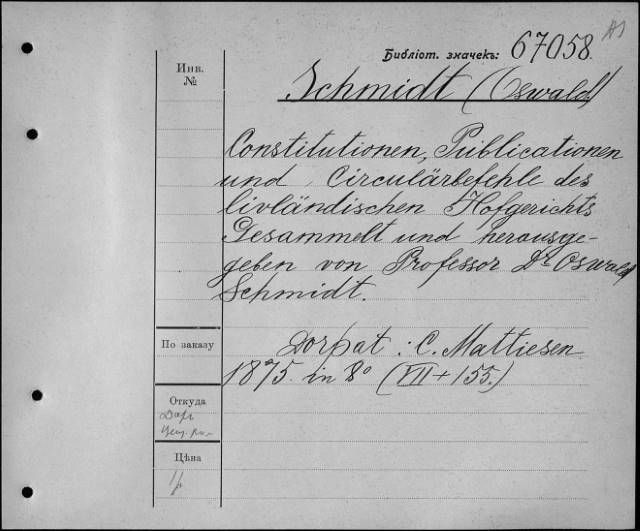 Библіот. значекъ: 67058.
Инв.
№
Schmidt (Oswald)
Constitutionen, Publicationen
und Circulärbefehle des
livländischen Hofgerichts
Gesammelt und herausge-
geben von Professor Dr. Oswald
Schmidt.
По заказу
Dorpat : C. Mattiesen
1875. in 8° (VII + 155.)
Откуда
Даръ
Цѣна